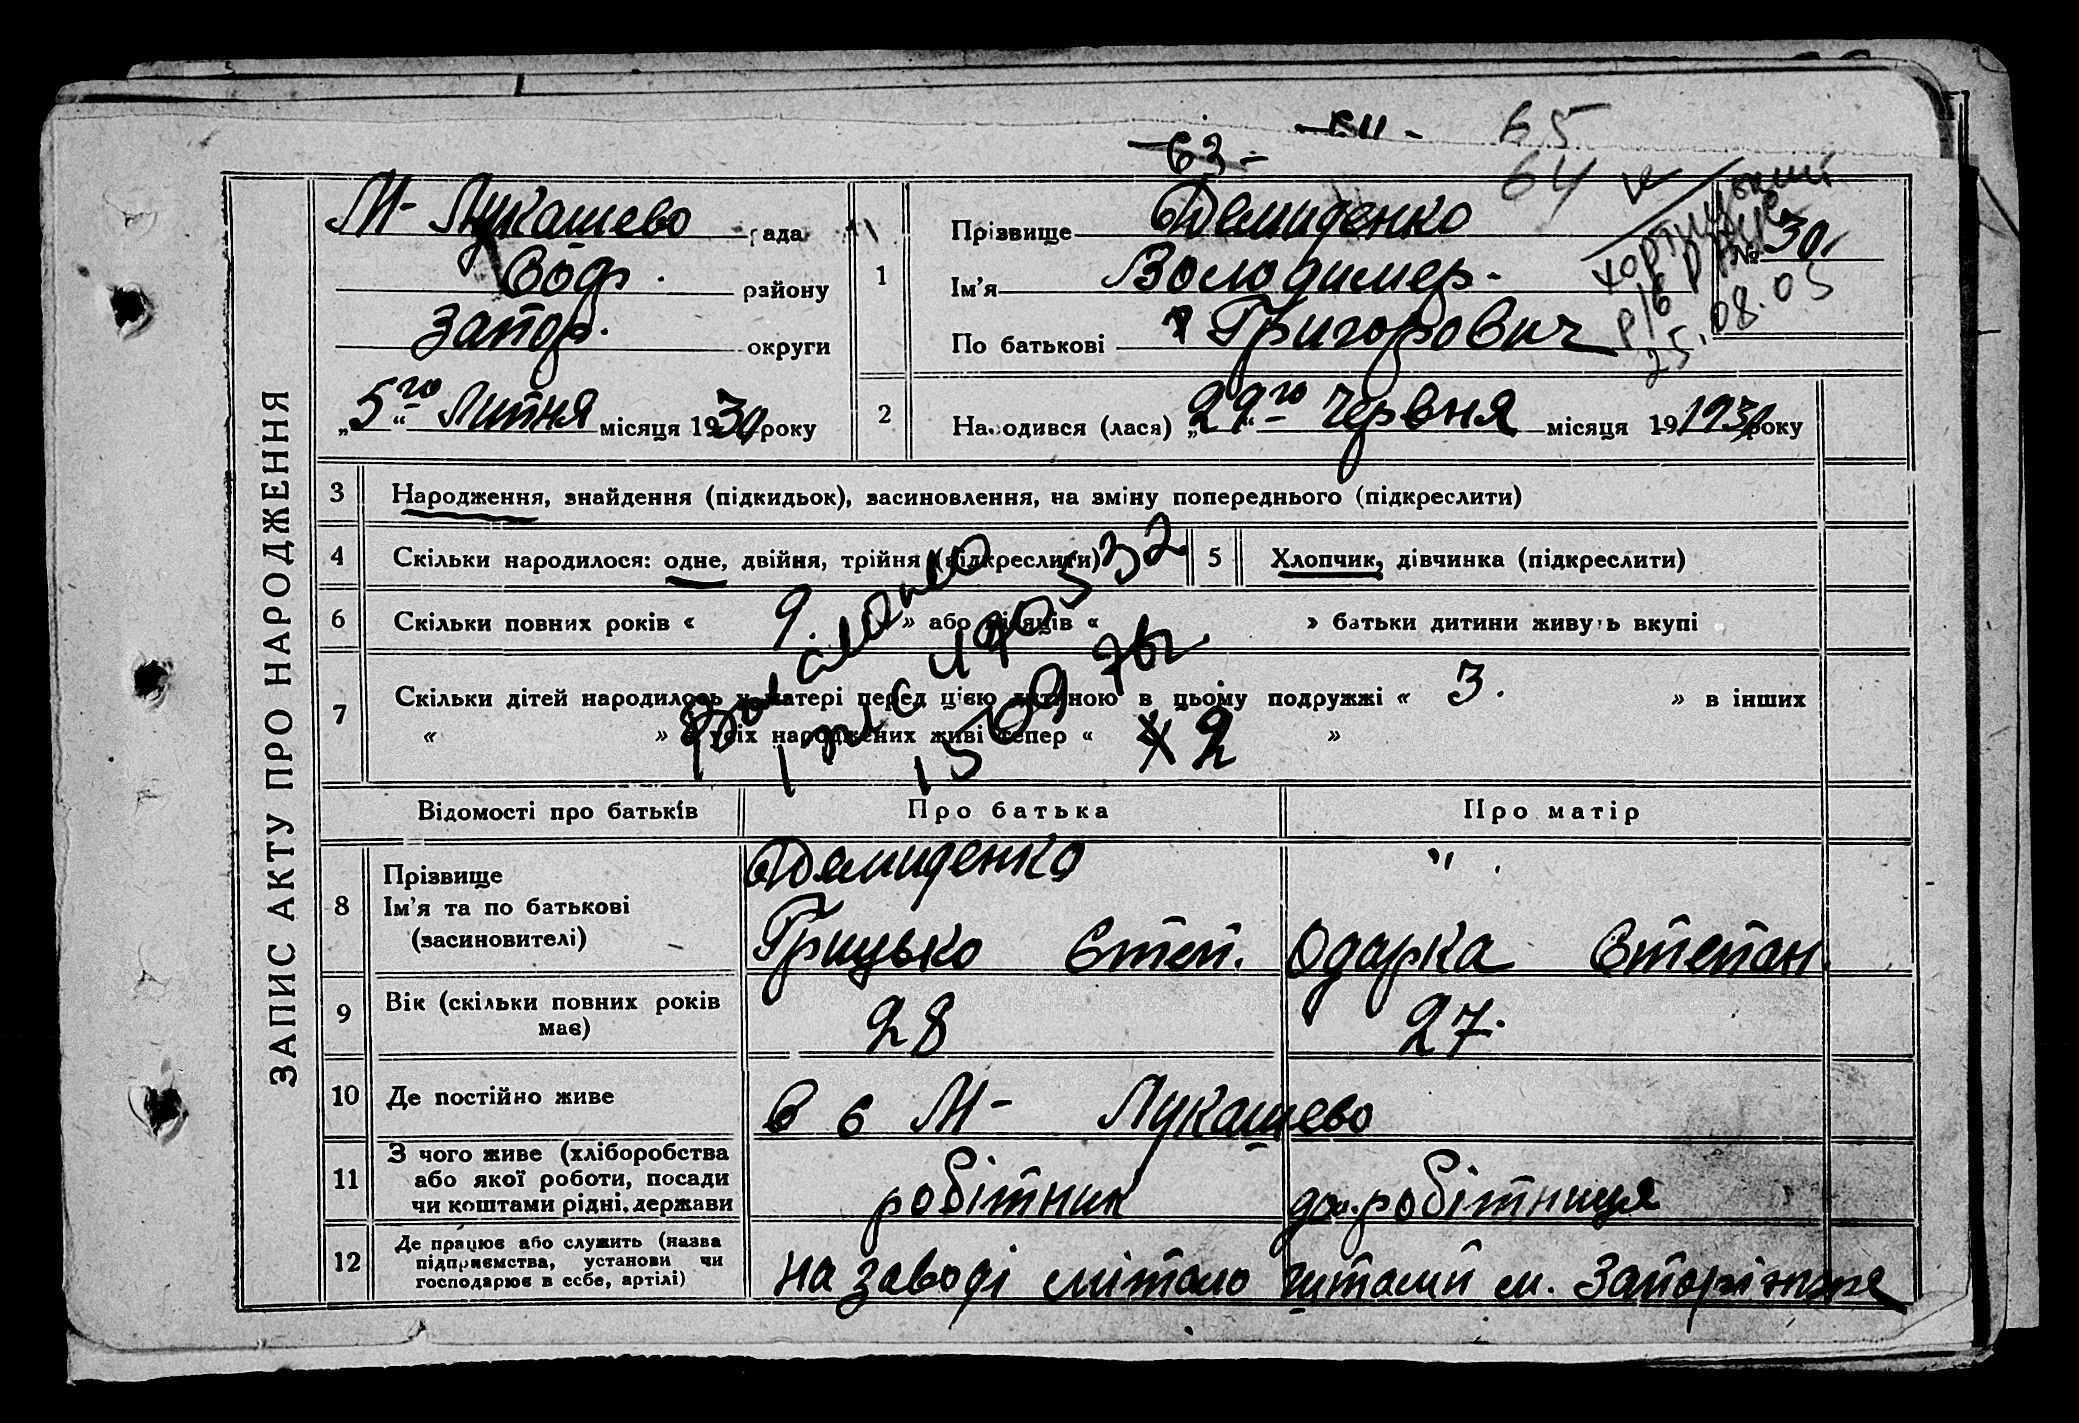 -63- 65
64
ЗАПИС АКТУ ПРО НАРОДЖЕННЯ
М-Лукашево рада
Соф. району
Запор. округи
„5го“ Липня місяця 1930 року
1 Прізвище Демиденко
Ім'я Володимер.
По батькові Григорович
№ 30
Хортицький
25.08.05
2 Народився (лася) „29го“ Червня місяця 19 1930 року
3 Народження, знайдення (підкидьок), засиновлення, на зміну попереднього (підкреслити)
4 Скільки народилося: одне, двійня, трійня (підкреслити)
5 Хлопчик, дівчинка (підкреслити)
6 Скільки повних років « 9. » або місяців « » батьки дитини живуть вкупі
7 Скільки дітей народилось у матері перед цією дитиною в цьому подружжі « 3. » в інших
« » з усіх народжених живі тепер « 2 »
Відомості про батьків Про батька Про матір
8 Прізвище
Ім'я та по батькові
(засиновителі)
Демиденко "
Грицько Степ. Одарка Степан.
9 Вік (скільки повних років
має)
28 27.
10 Де постійно живе
в с М- Лукашево
11 З чого живе (хліборобства
або якої роботи, посади
чи коштами рідні, держави
робітник дом. робітниця
12 Де працює або служить (назва
підприємства, установи чи
господарює в себе, артілі)
на заводі м. Запоріжже